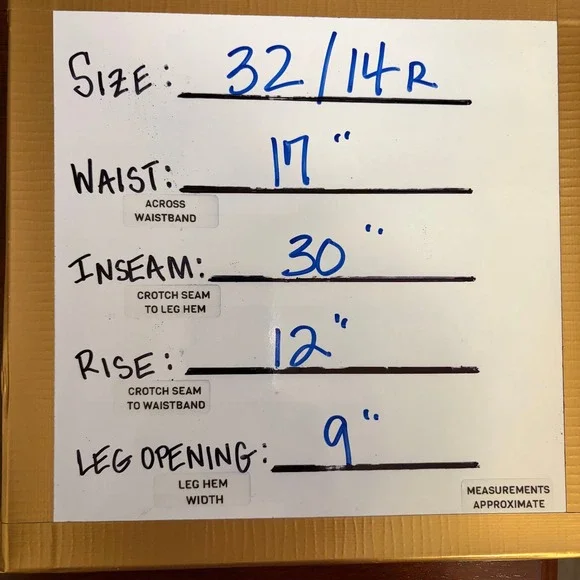 SIZE: 32/14R
WAIST: 17"
ACROSS
WAISTBAND
INSEAM: 30"
CROTCH SEAM
TO LEG HEM
RISE: 12"
CROTCH SEAM
TO WAISTBAND
LEG OPENING: 9"
LEG HEM
WIDTH
MEASUREMENTS
APPROXIMATE